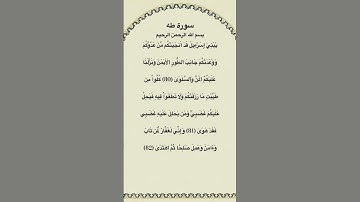 سورة طه
بسم الله الرحمن الرحيم
يَبَنِيٓ إِسْرَآءِيلَ قَدْ أَنجَيْنَٰكُم مِّنْ عَدُوِّكُمْ
وَوَٰعَدْنَٰكُمْ جَانِبَ الطُّورِ الْأَيْمَنَ وَنَزَّلْنَا
عَلَيْكُمُ الْمَنَّ وَالسَّلْوَىٰ (80) كُلُوا۟ مِن
طَيِّبَٰتِ مَا رَزَقْنَٰكُمْ وَلَا تَطْغَوْا۟ فِيهِ فَيَحِلَّ
عَلَيْكُمْ غَضَبِي وَمَن يَحْلِلْ عَلَيْهِ غَضَبِي
فَقَدْ هَوَىٰ (81) وَإِنِّي لَغَفَّارٌ لِّمَن تَابَ
وَءَامَنَ وَعَمِلَ صَٰلِحًا ثُمَّ اهْتَدَىٰ (82)